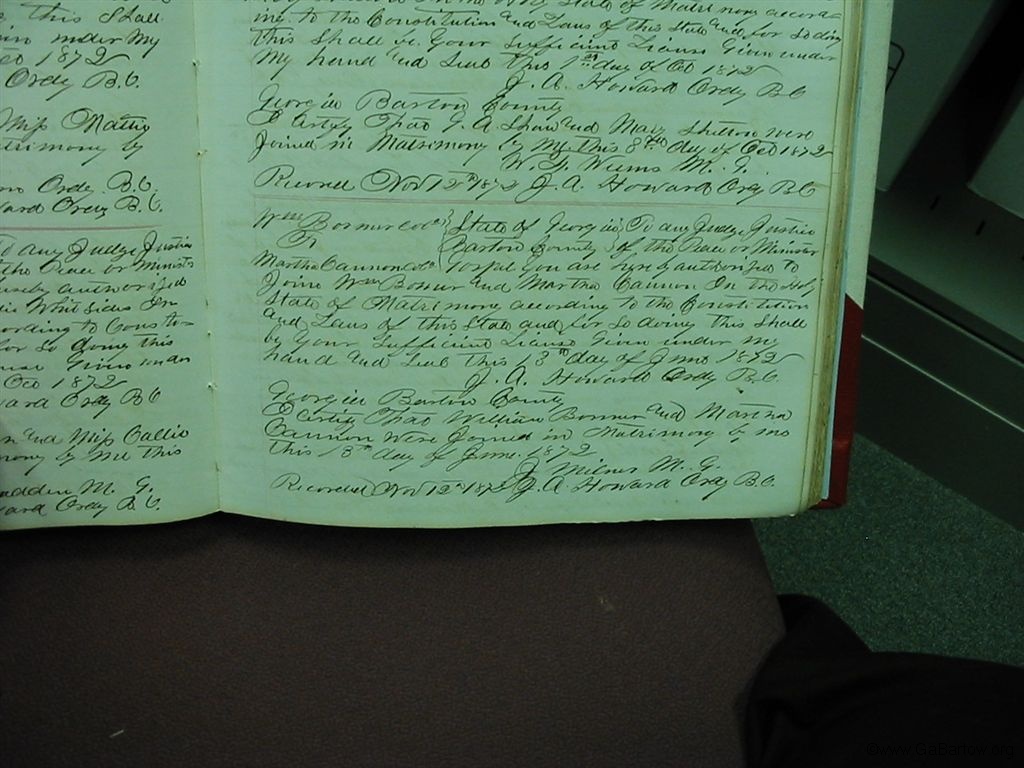 this Shall
under My
1872
Ordy B.C.
Miss Mattie
Matrimony by
Ordy B.C.
Howard Ordy B.C.
To any Judge Justice
the Peace or Minister
hereby authorized
Whitsides In
according to Cons ti=
for So doing this
Given under
Oct 1872
Howard Ordy B.C.
and Miss Callie
Matrimony by Me this
M. G.
Howard Ordy B.C.
State of Matrimony accord=
ing to the Constitution and Laws of this State and for So doing
this Shall be Your Sufficient License Given under
My hand and Seal this 1st day of Oct 1872
J. A. Howard Ordy B.C.
Georgia Bartow County
I Certify That J. A. Shaw and Mary Shelton were
Joined in Matrimony by Me this 8th day of Oct 1872
W. F. Weems M. G.
Recorded Nov 12th 1872 J. A. Howard Ordy B.C.
Wm Bonner Cold } State of Georgia, To any Judge Justice
To } Bartow County of the Peace or Minister
Martha Cannon Cold Gospel You are hereby authorized to
Joine Wm Bonner and Martha Cannon In the Holy
State of Matrimony according to the Constitution
and Laws of this State and for So doing this Shall
be Your Sufficient License Given under my
hand and Seal this 13th day of June 1872
J. A. Howard Ordy B.C.
Georgia Bartow County
I Certify That William Bonner and Martha
Cannon Were Joined in Matrimony by me
this 13th day of June. 1872
J. Milner M. G.
Recorded Nov 12th 1872 J. A. Howard Ordy B.C.